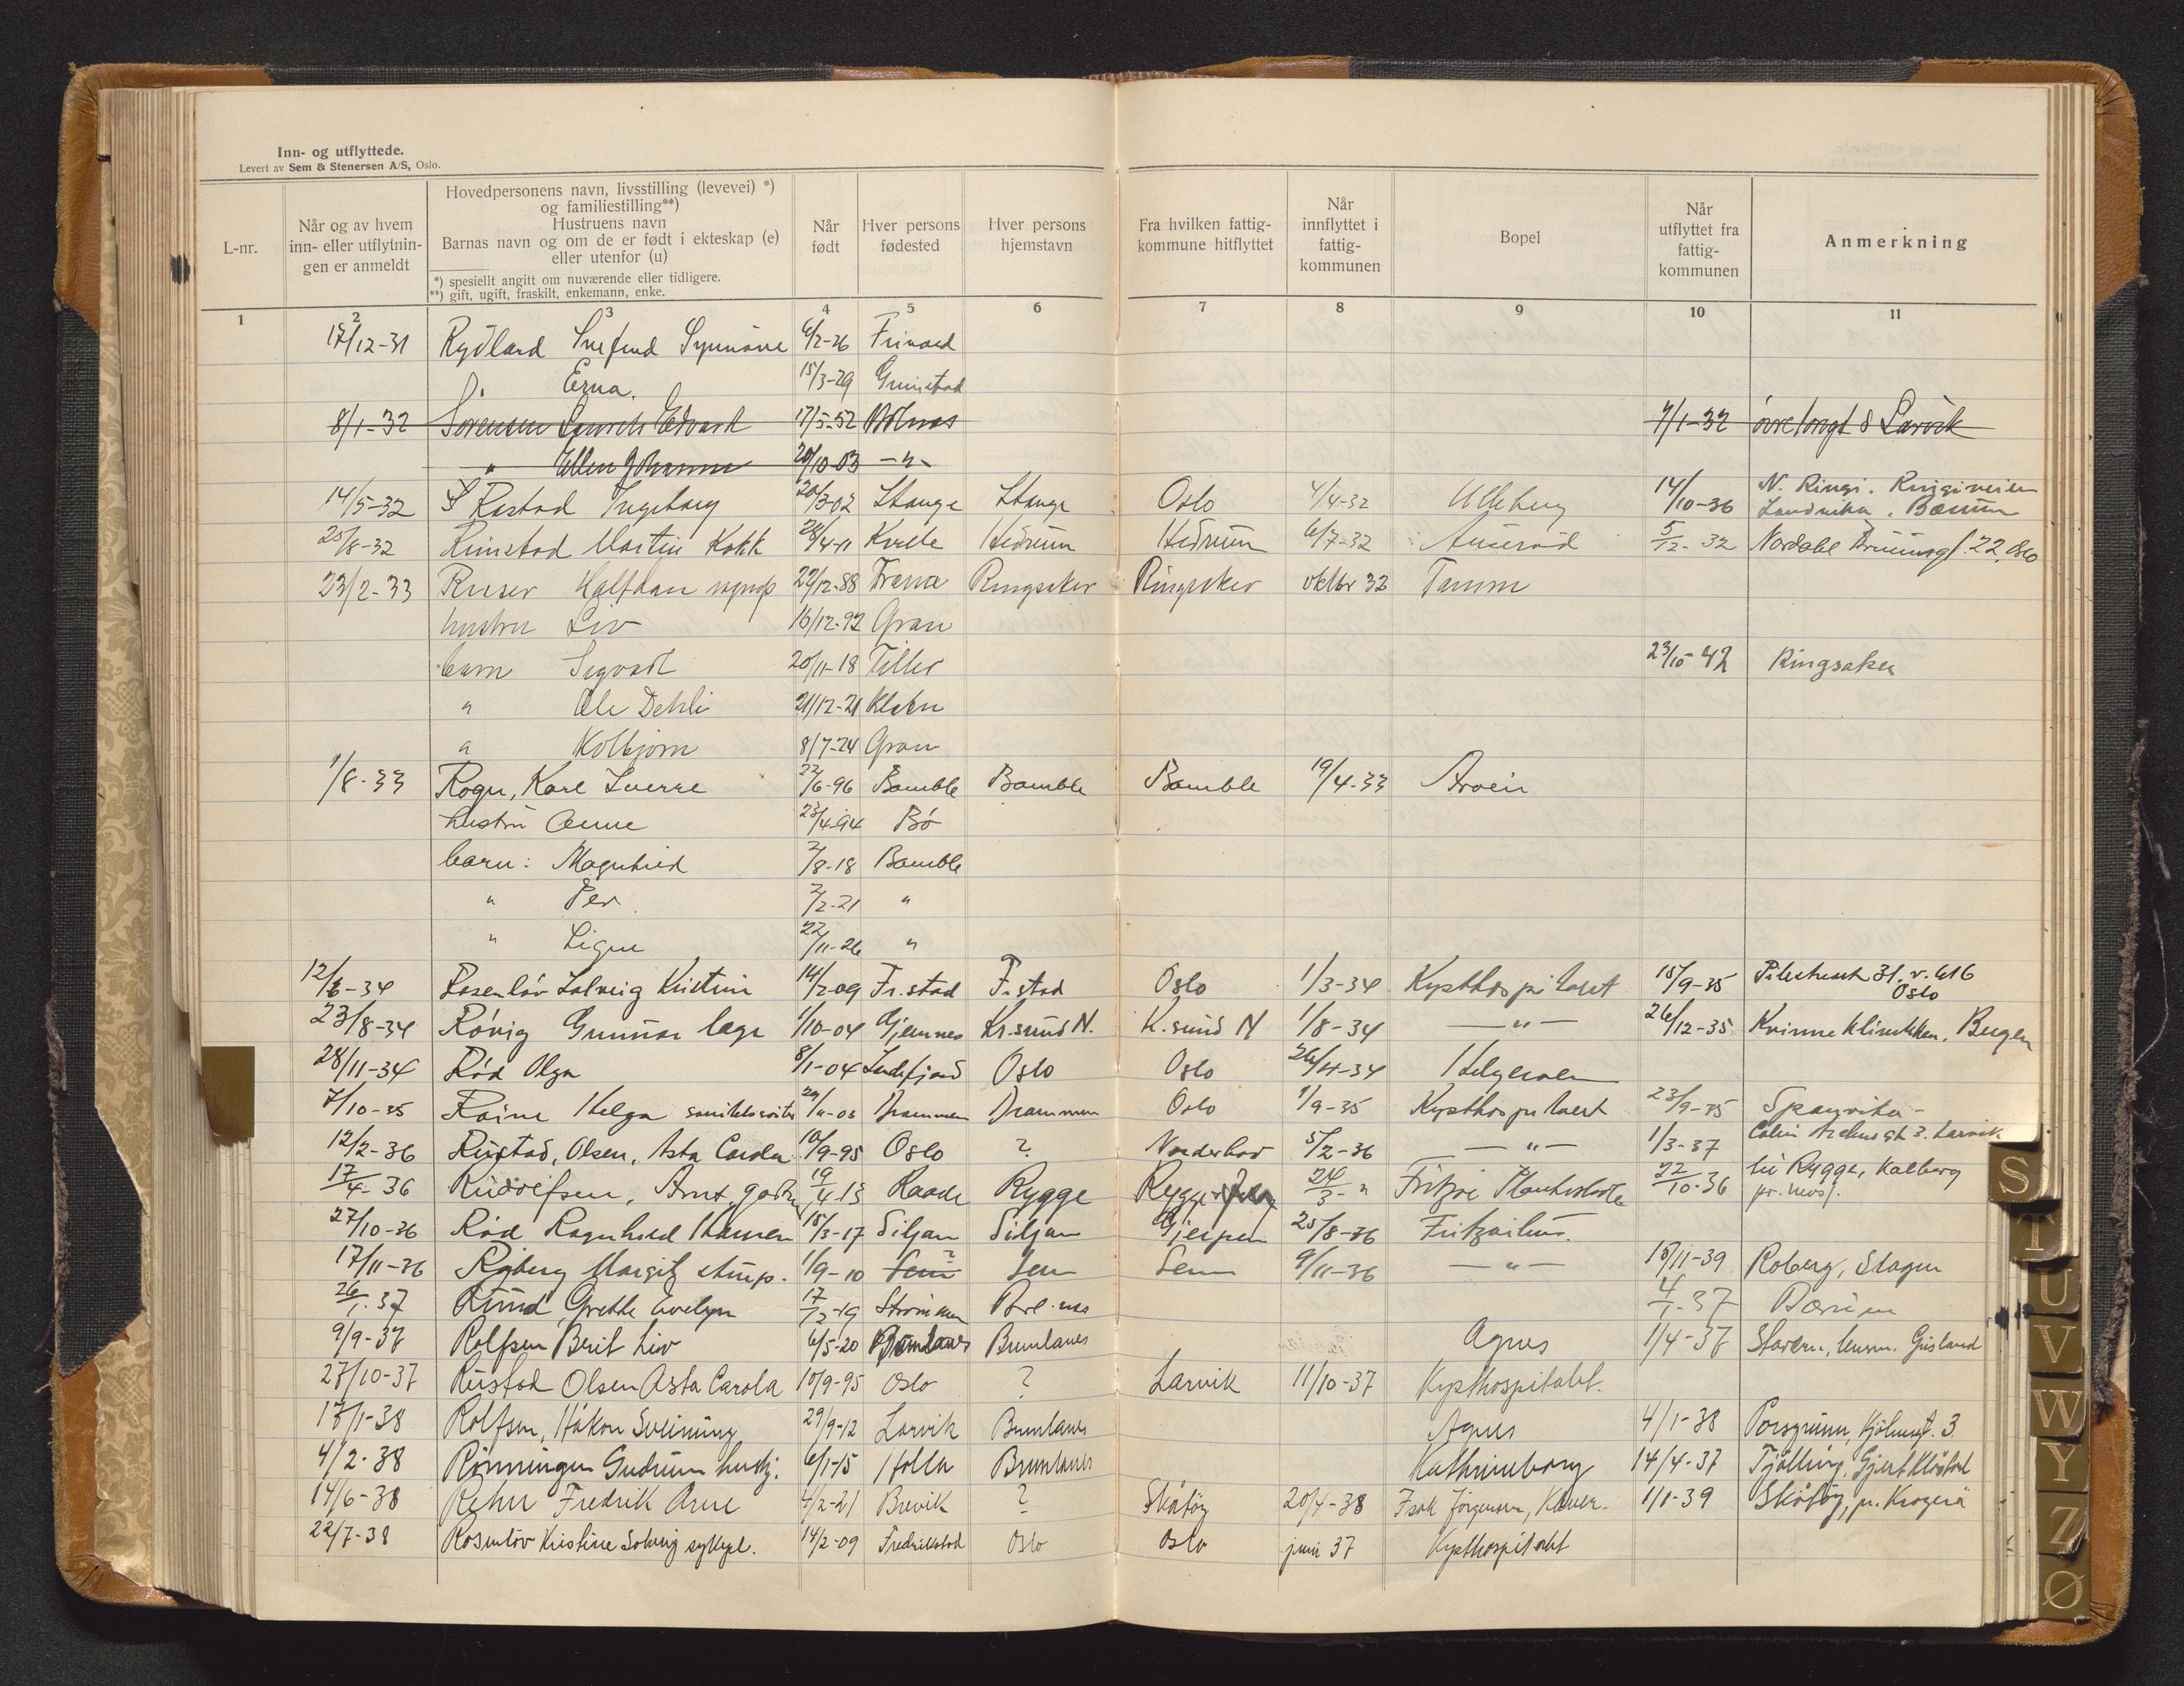 Inn- og utflyttede.
Levert av Sem & Stenersen A/S, Oslo.
L-nr.
Når og av hvem inn- eller utflytnin- gen er anmeldt
Hovedpersonens navn, livsstilling (levevei) *) og familiestilling**)
Hustruens navn
Barnas navn og om de er født i ekteskap (e) eller utenfor (u)
*) spesiellt angitt om nuværende eller tidligere.
**) gift, ugift, fraskilt, enkemann, enke.
Når født
Hver persons fødested
Hver persons hjemstavn
Fra hvilken fattig- kommune hitflyttet
Når innflyttet i fattig- kommunen
Bopel
Når utflyttet fra fattig- kommunen
Anmerkning
1 2 3 4 5 6 7 8 9 10 11
17/12-31 Rydland Synnöve 6/2-26
Erna. 15/3-29 Grimstad
8/1-32 Sörensen Edvard 17/5-52 7/1-32 Larvik
" Ellen Johanne 20/10-03 -"-
14/5-32 Rastad Ingeborg 20/3-02 Stange Stange Oslo 4/4-32 Ulleberg 14/10-36 N. Ringi. Ringiveien
Sandvika. Bærum
25/8-32 Rimstad Martin Kokk 28/4-11 Kvelle Hedrum Hedrum 6/7-32 Auseröd 5/12-32 22, Oslo
23/2-33 Ruser Halfdan 22/12-88 Træna Ringsaker Ringsaker oktbr 32 Tamm
hustru Liv 16/12-92 Gran
barn Sigvart 20/11-18 Tiller 23/10-42 Ringsaker
" Ole Dehli 21/12-21 Klæbu
" Kolbjørn 8/7-24 Gran
1/8-33 Rogn, Karl Sverre 22/6-96 Bamble Bamble Bamble 19/4-33 Aroei
hustru Anne 23/4-94 Bö
barn: Magnhild 2/8-18 Bamble
" Per 2/2-21 "
" Signe 22/11-26 "
12/6-34 Rosenlöv Solveig Kristine 14/2-09 Fr.stad F.stad Oslo 1/3-34 Kysthospitalet 15/9-35 Pilestredet 31, v. 616
Oslo
23/8-34 Rövig Gunnar læge 1/10-04 Gjemnes Kr.sund N. K.sund N 1/8-34 -"- 26/12-35 Kvinneklinikken. Bergen
28/11-34 Röd Olga 8/1-04 Sandefjord Oslo Oslo Helgeroa
7/10-35 Roine Helga Drammen Drammen Oslo 1/9-35 Kysthospitalet 23/9-35 Spangvika-
12/2-36 Rustad, Olsen, Asta Carola 10/9-95 Oslo ? Norderhov 5/2-36 -"- 1/3-37 Colin Archersgt 3. Larvik
17/4-36 Rudolfsen, Arnt, 19/4-13 Raade Rygge Rygge 24/3-" Fritzöe 22/10-36 til Rygge, Kalberg
pr. Moss.
27/10-36 Röd Ragnhild 15/3-17 Siljan Siljan Gjerpen 25/8-36 Fritzöehus.
17/11-36 Röberg Margit 1/9-10 Sem ? Sem Sem 9/11-36 -"- 15/11-39 Roberg, Slagen
26/1-37 Rund, Grethe Evelyn 17/12-19 Strömmen 4/1-37 Bærum
9/9-37 Rolfsen Berit Liv 6/5-20 Brunlanes Brunlanes Agnes 1/4-37 Stavern, Gusland
27/10-37 Rustad Olsen Asta Carola 10/9-95 Oslo ? Larvik 11/10-37 Kysthospitalet.
18/1-38 Rolfsen, Håkon Sveinung 29/9-12 Larvik Brunlanes Agnes 4/1-38 Porsgrunn, 3.
4/2-38 Rönningen Gudrun hushj. 6/1-15 Holla Brunlanes Kathrineborg 14/4-37 Tjölling,
14/6-38 Rehn Fredrik Arne 4/2-21 Brevik ? Skåtöy 20/4-38 Isak Jörgensen, 1/1-39 Skåtöy, pr. Kragerö
22/7-38 Rosenlöv Kristine Solveig sykepl. 14/2-09 Fredrikstad Oslo Oslo juni 37 Kysthospitalet
S
T
U
V
W
Y
Z
Ø